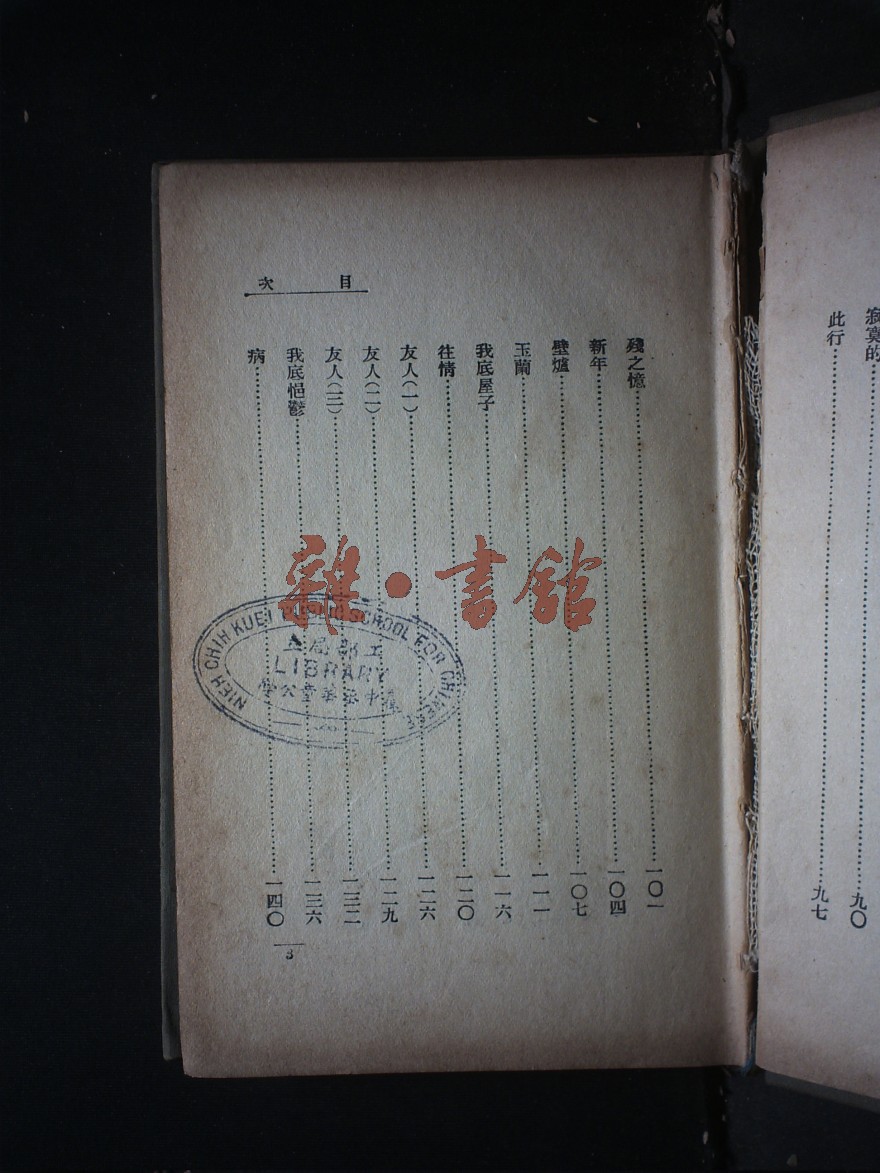 寂寞的……九〇
此行……九七
目次
殘之憶……一〇一
新年……一〇四
壁爐……一〇七
玉蘭……一一一
我底屋子……一一六
往情……一二〇
友人(一)……一二六
友人(二)……一二九
友人(三)……一三二
我底悒鬱……一三六
病……一四〇
3
雜·書館
NIEH CHIH KUEI PUBLIC SCHOOL FOR CHINESE
工部局立
LIBRARY
中丞華童公學